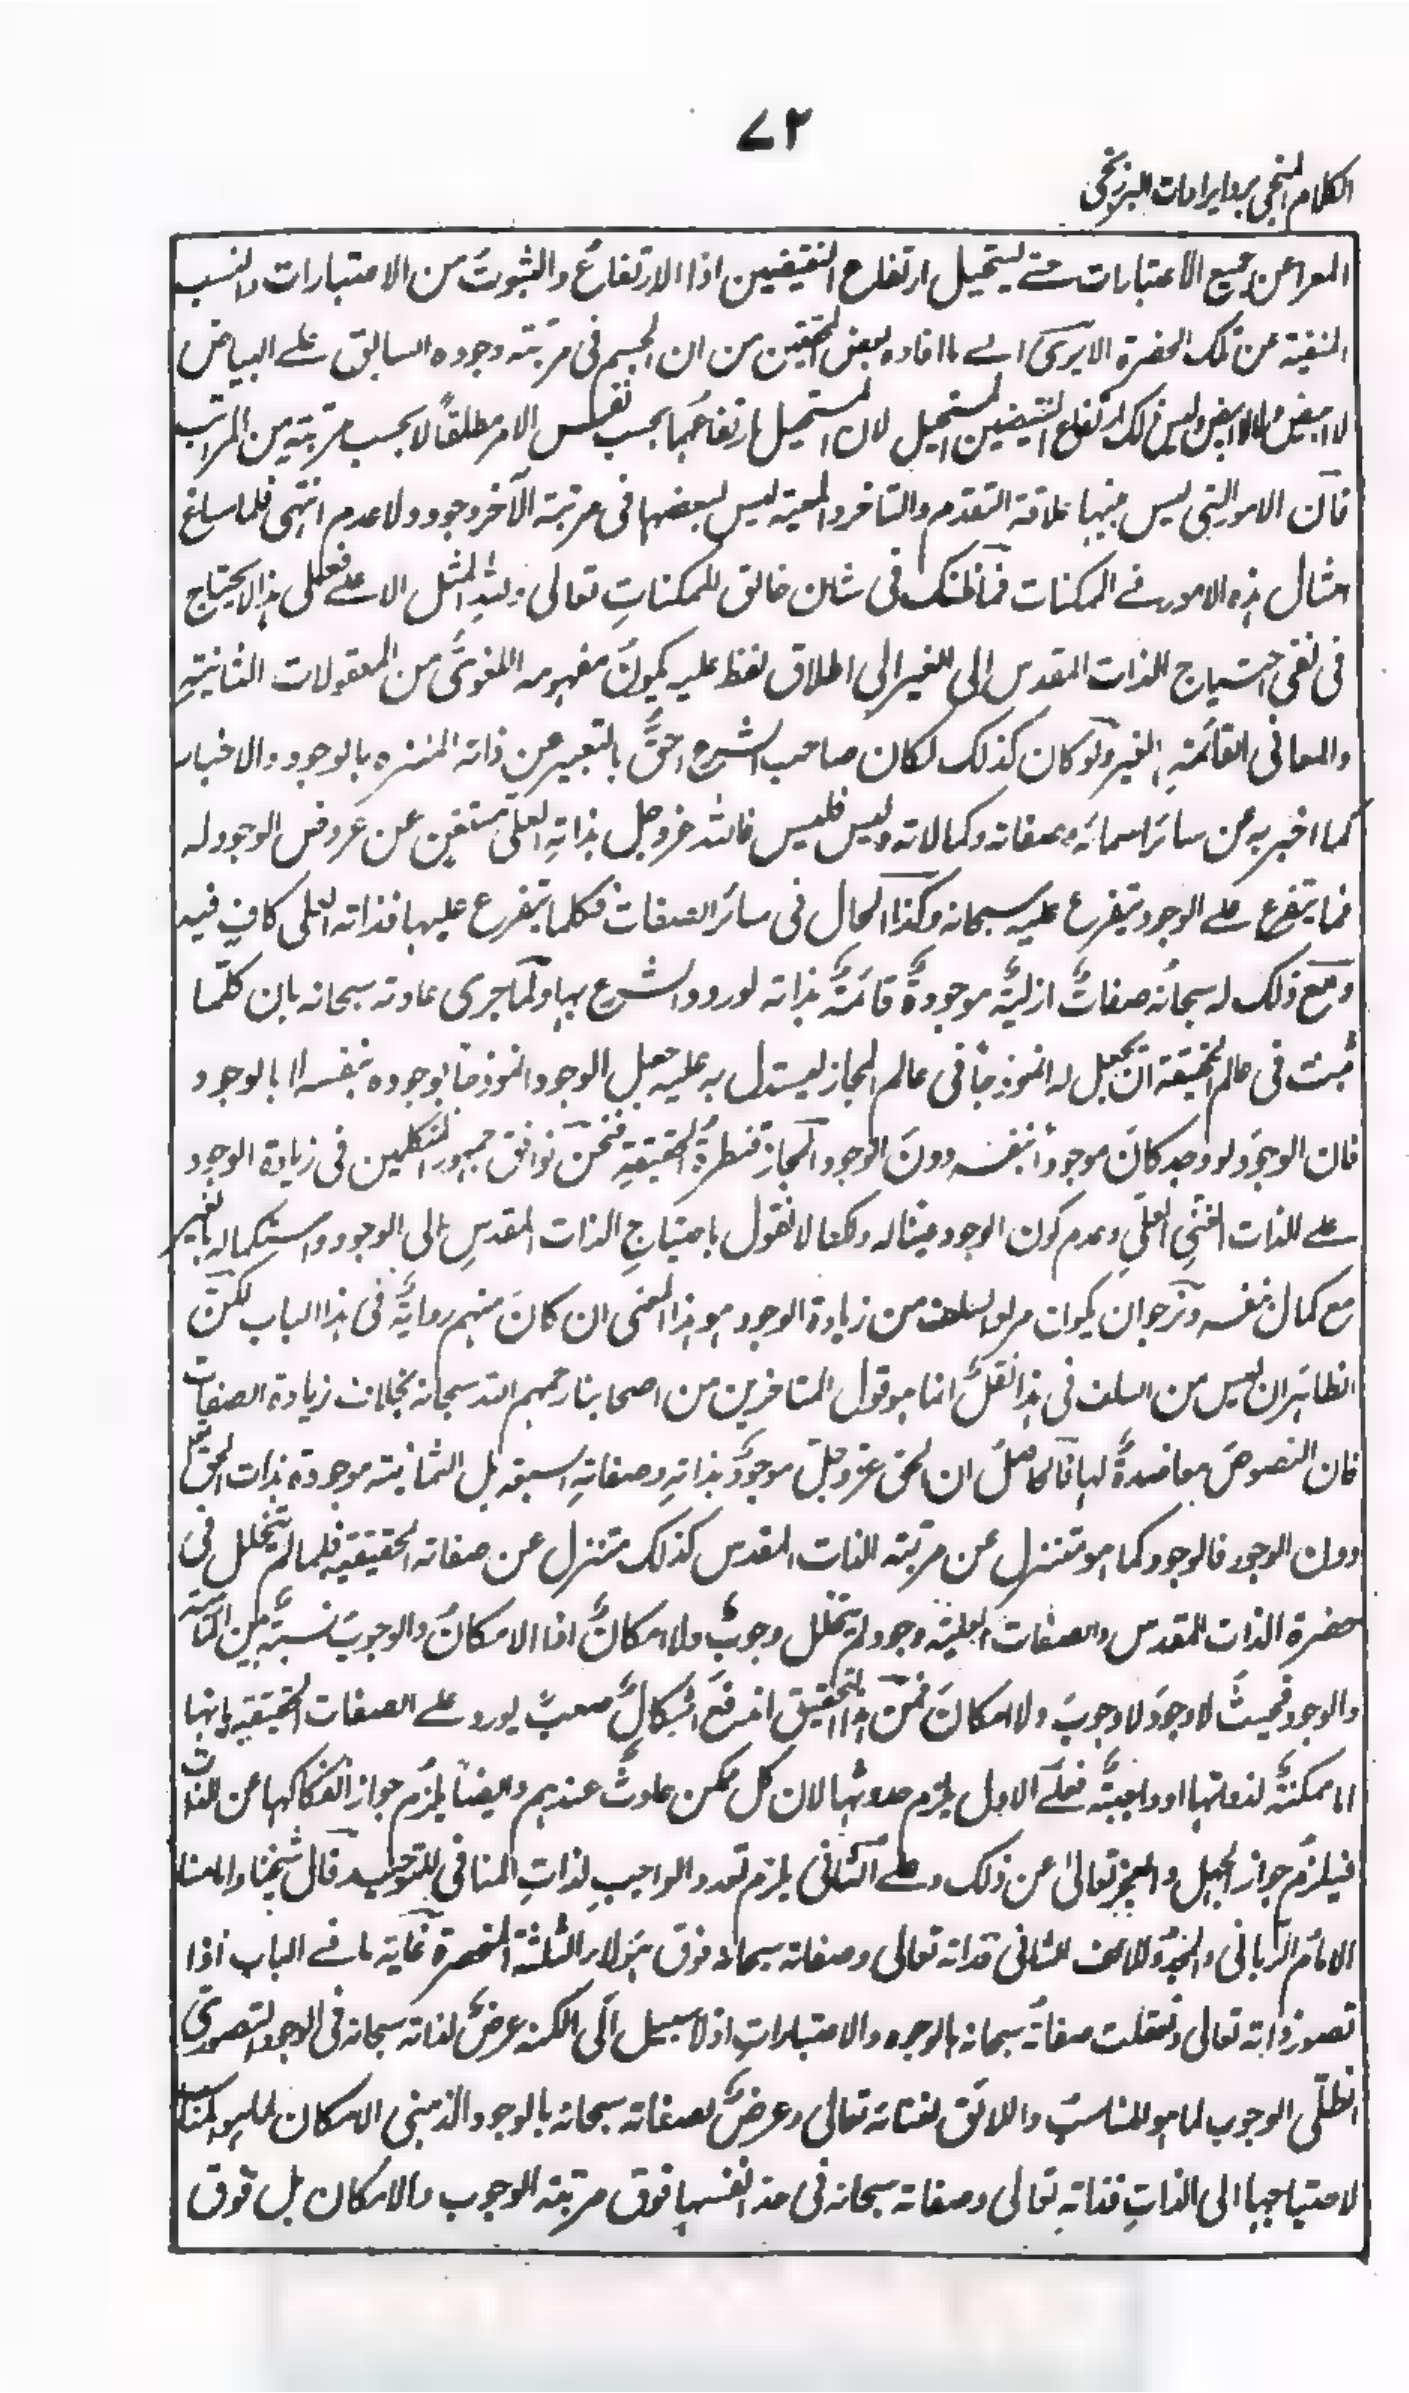 ٧٢
الكلام المنجي برد ايرادات البرزنجي
المعرا عن جميع الاعتبارات حتے يستحيل ارتفاع النقيضين اذا الارتفاع والثبوت من الاعتبارات والنسب
المنفية عن تلك الحضرة الا يرى الے ما افاده بعض المحققين من ان الجسم في مرتبة وجوده السابق علے البياض
لا ابيض ولا لا ابيض وليس ذلك ارتفاع النقيضين المستحيل لان المستحيل ارتفاعهما بحسب نفس الامر مطلقًا لا بحسب مرتبته من المراتب
فان الامور التي ليس بينها علاقة التقدم والتاخر والمعية ليس لبعضها في مرتبة الآخر وجود ولا عدم انتهى فلما ساغ
امثال هذه الامور في الممكنات فما ظنك في شان خالق الممكنات تعالى ولله المثل الاعلے فعلى هذا لا يحتاج
في نفى احتياج الذات المقدس الى الغير الى اطلاق لفظ عليه يكون مفهومه اللغوىّ من المعقولات الثانية
والمعاني القائمة بالغير ولو كان كذلك لكان صاحب الشرع احقّ بالتعبير عن ذاته المنزه بالوجود والاخبار
كما اخبر به عن سائر اسمائه وصفاته وكمالاته وليس فليس فالله عز وجل بذاته العلى مستغن عن عروض الوجود له
فما يتفرع علے الوجود يتفرع عليه سبحانه وكذا الحال في سائر الصفات فكلما يتفرع عليها فذاته العلى كاف فيه
ومع ذلك له سبحانه صفاتٌ ازليةٌ موجودةٌ قائمةٌ بذاته لورود الشرع بها ولما جرى عادته سبحانه بان كلما
ثبت في عالم الحقيقة ان يجعل له انموذجًا في عالم المجاز ليستدل به عليه جعل الوجود انموذجًا لوجوده بنفسه لا بالوجود
فان الوجود لو وجد كان موجودًا بنفسه دون الوجود المجاز قنطرة الحقيقة فنحن نوافق جمهور المتكلمين في زيادة الوجود
علے الذات الغني العلي وعدم كون الوجود عينا له ولكنا لا نقول باحتياج الذات المقدس الى الوجود واستكماله بالغير
مع كمال نفسه ونرجو ان يكون مراد السلف من زيادة الوجود هو هذا المعنى ان كان منهم رواية في هذا الباب لكنّ
الظاهر ان ليس من السلف في هذا نقل انما هو قول المتاخرين من اصحابنا رحمهم الله سبحانه بخلاف زيادة الصفات
فان النصوص معاضدة لها فالحاصل ان الحق عز وجل موجود بذاته وصفاته السبعة بل الثمانية موجودة بذات الحق تعالى
دون الوجود فالوجود كما هو متنزل عن مرتبة الذات المقدس كذلك متنزل عن صفاته الحقيقية فلما لم يتخلل في
حضرة الذات المقدس والصفات العلية وجود لم يتخلل وجوبٌ ولا امكانٌ اذا الامكان والوجوب نسبة بين الماهية
والوجود فحيث لا وجود لا وجوب ولا امكان فمن هذا التحقيق اندفع اشكالٌ صعبٌ يورد علے الصفات الحقيقية بانها
اما ممكنةٌ لذواتها او واجبةٌ فعلے الاول يلزم حدوثها لان كل ممكن حادث عندهم وايضًا يلزم جواز انفكاكها عن الذات
فيلزم جواز الجهل والعجز تعالى عن ذلك وعلے الثاني يلزم تعدد الواجب لذات المنافي للتوحيد قال شيخنا وامامنا
الامام الرباني والمجدد للالف الثاني فذاته تعالى وصفاته سبحانه فوق هؤلاء الثلثة المنحصرة غاية ما في الباب اذا
تصور ذاته تعالى وتعقلت صفاته سبحانه بالوجوه والاعتبارات اذ لا سبيل الى الكنه عرض لذاته سبحانه في الوجود التصورى
الظلّى الوجوب لما هو المناسب واللائق لغنائه تعالى وعرض لصفاته سبحانه بالوجود الذهنى الامكان لما هو المناسب
لاحتياجها الى الذات فذاته تعالى وصفاته سبحانه في حد انفسها فوق مرتبة الوجوب والامكان بل فوق